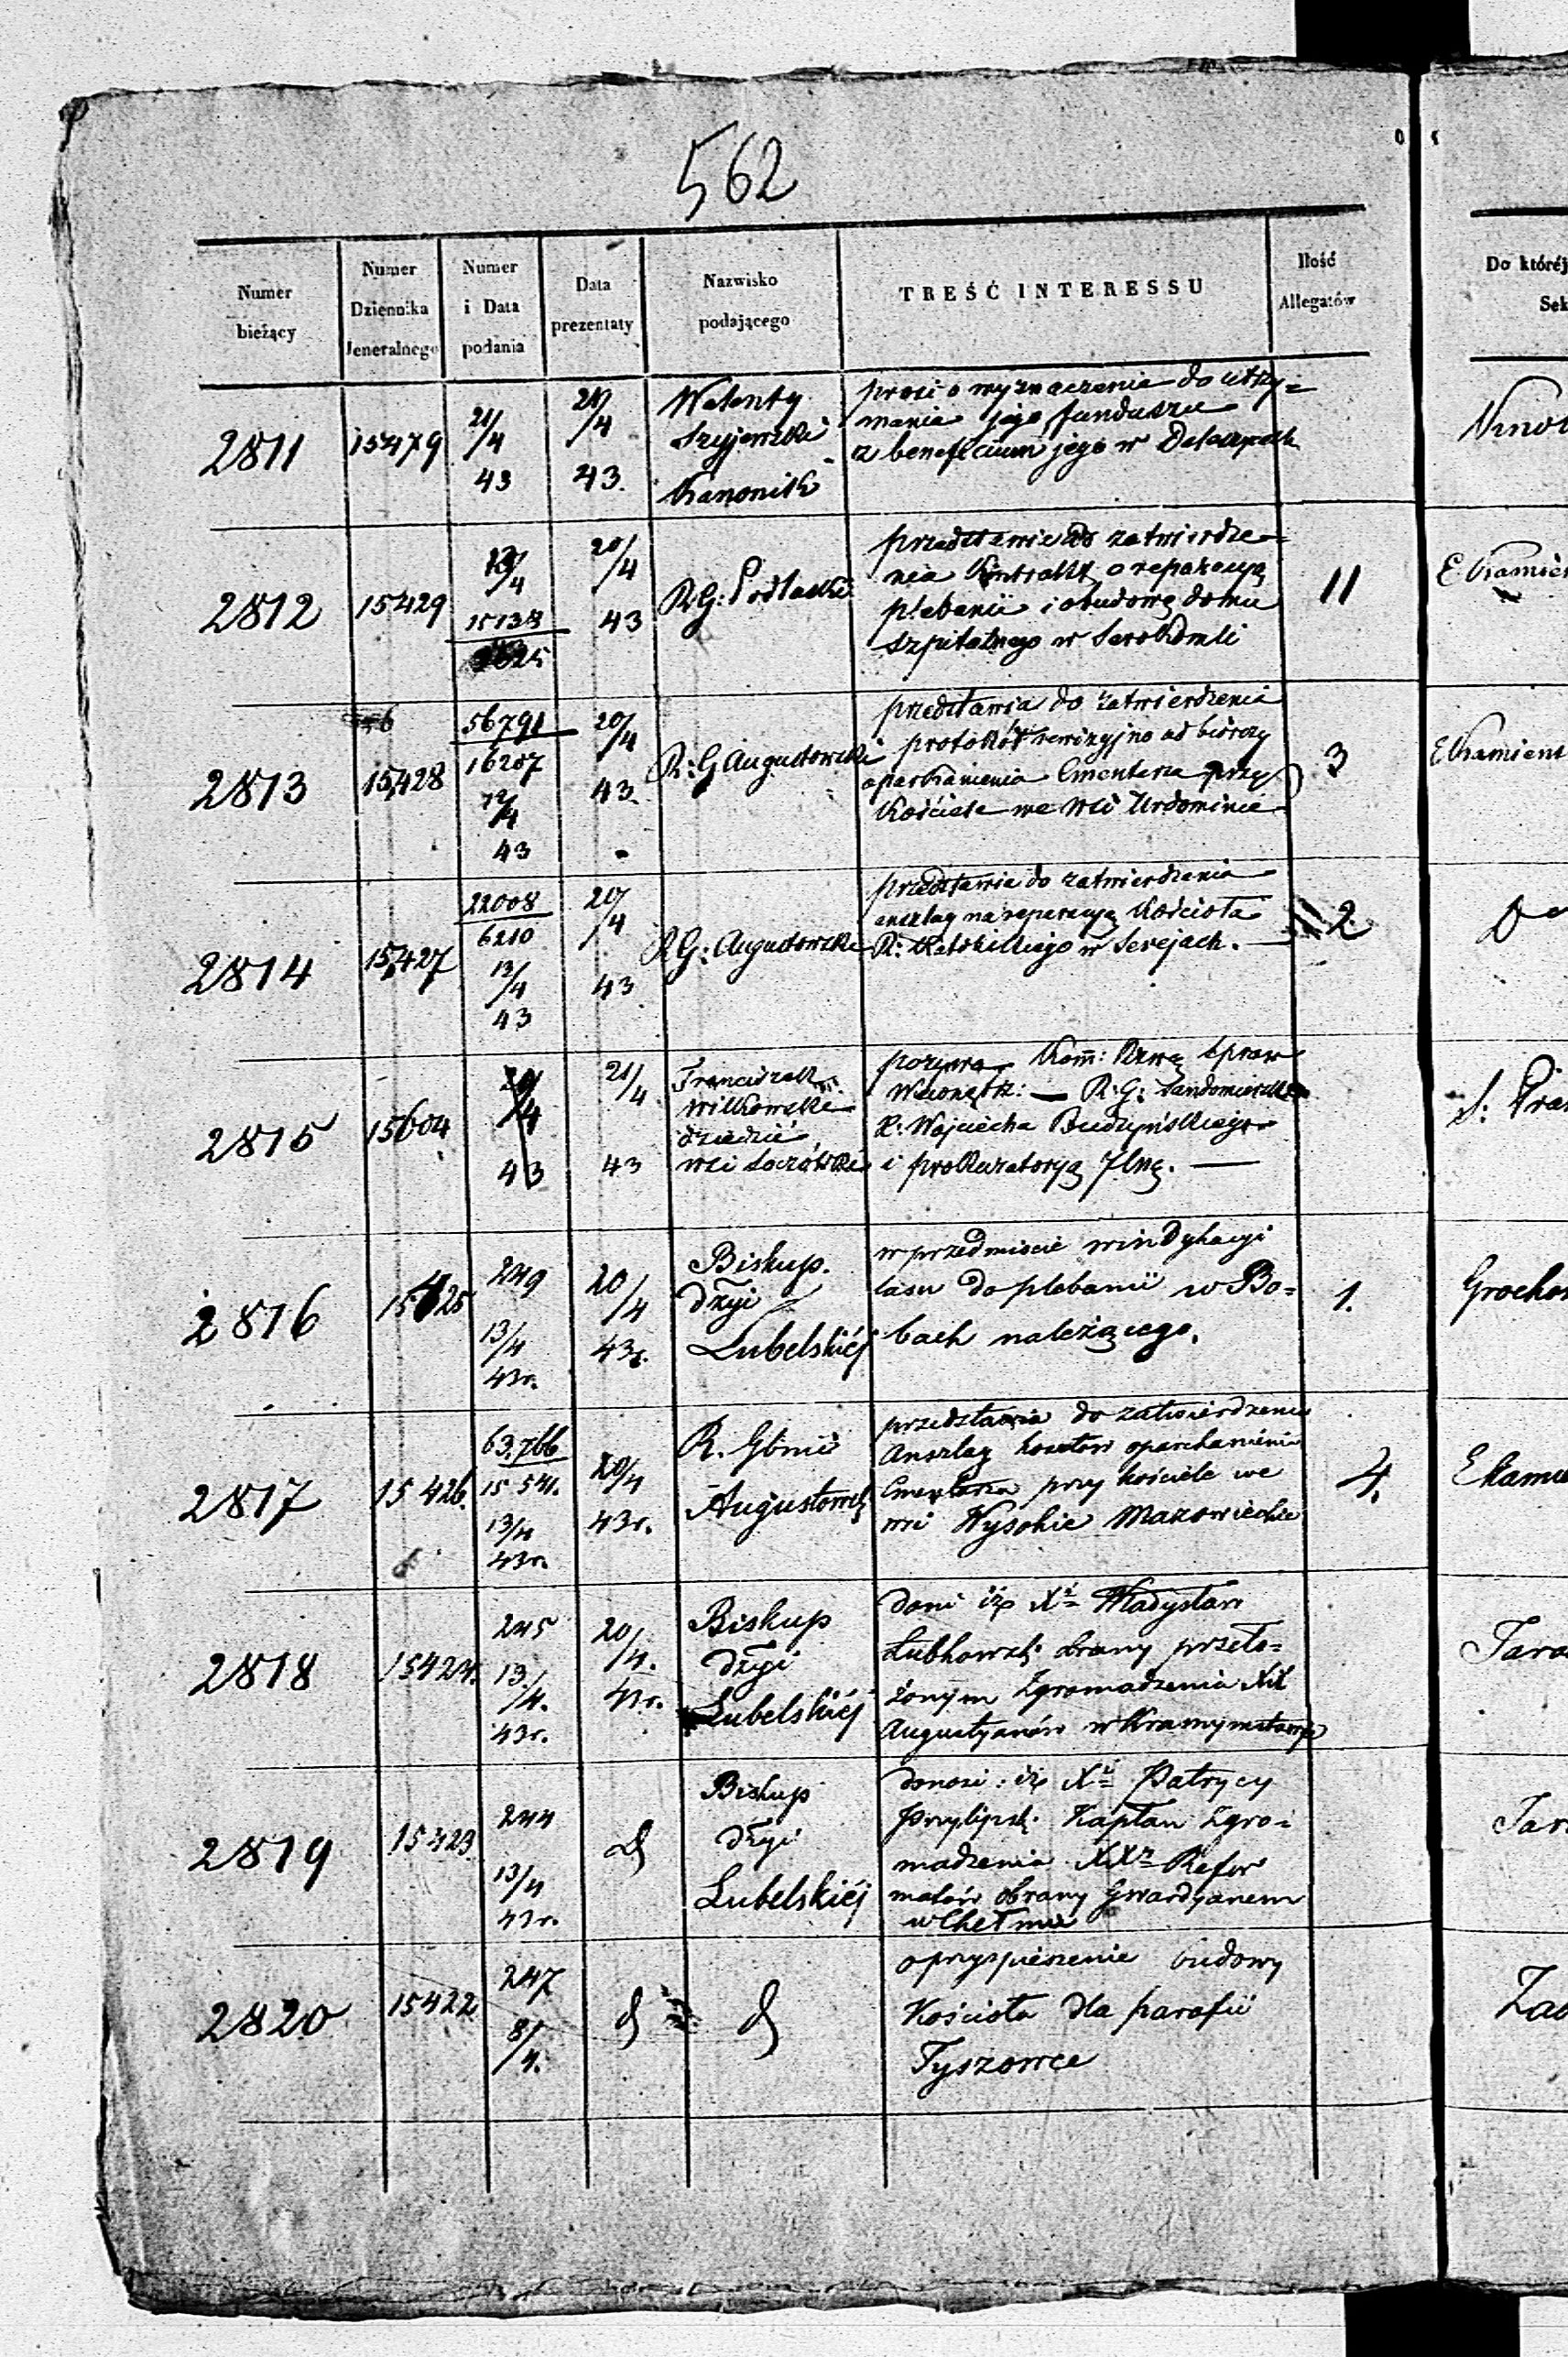 562
Numer bieżący
Numer Dziennika Jeneralnego
Numer i Data podania
Data prezentaty
Nazwisko podającego
TREŚĆ INTERESSU
Ilość Allegatów
Do której
Sek
2811
15479
21/4
43
21/4
43.
Walenty
Szyjewski
Kanonik
prosi o wyznaczenie do utrzy=
mania jego funduszu
z beneficium jego w
2812
15429
13/4
15138
20/4
43
R.G: Podlaski
przedstawia do zatwierdze=
nia Kontrakt o reparacyą
plebanii i obudowę domu
szpitalnego w Serokomli
11
2813
15428
56791
16207
12/4
43
20/4
43.
R: G Augustowski
przedstawia do zatwierdzenia
protokół rewizyjno odbiorczy
oparkanienia Cmentarza przy
Kościele we Wsi Urdominie
3
2814
15427
22008
6210
13/4
43
20/4
43
R G: Augustowski
przedstawia do zatwierdzenia
anszlag na reparacyą Kościoła
R: Katolickiego w Serejach.
2
2815
15604
20/4
43
21/4
43
Franciszek
Wilkowski
dziedzic
wsi
pozywa Kom: Rzwą Spraw
Wewnętrz: — R: G: Sandomierski
X: Wojciecha
i prokuratoryą Jlną. —
2816
15425
249
13/4
43r.
20/4
43r.
Biskup.
Dżyi
Lubelskiéj
w przedmiocie windykacyi
lasu do plebanii w Bo=
bach należącego.
1.
Grocho
2817
15426.
63.766
15 541.
13/4
43r.
20/4
43r.
R. Gbnii
Augustowsk
przedstawia do zatwierdzenia
Anszlag kosztów oparkanienia
Cmentarza przy kościele we
wsi Wysokie Mazowieckie
4.
2818
15424.
245
13/4.
43r.
20/4.
43r.
Biskup
Dżyi
Lubelskiéj
Doni iż X. Władysław
Łubkowsk. obrany przeło=
żonym Zgromadzenia XX
Augustyanów w Krasnymstawie
2819
15423.
244
13/4
43r.
d
Biskup
Dżyi
Lubelskiéj
Donosi: iż X. Patrycy
Przylipsk. Kapłan Zgro=
madzenia XX. Refor
matów obrany Gwardyanem
w Chełmie
2820
15422
247
8/4.
d
d
o przyspieszenie budowy
Kościoła dla parafii
Tyszowce